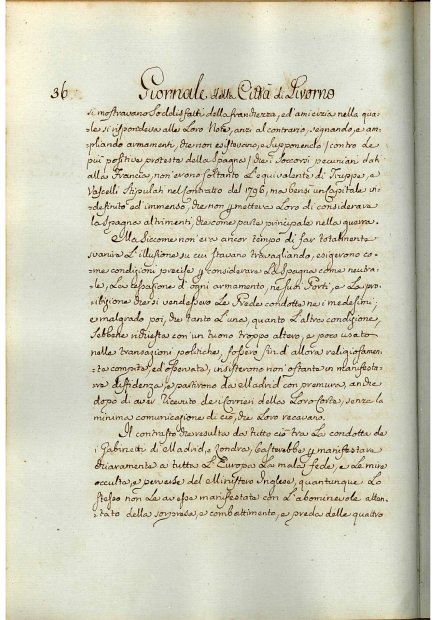 36 Giornale della Città di Livorno
si mostravano soddisfatti della franchezza, ed amicizia nella qua-
le si rispondeva alle Loro Note, anzi al contrario, segnando, e am-
pliando armamenti, che non esistevano, e supponendo /contro le
più positive proteste della Spagna/ che i Soccorsi pecuniari dati
alla Francia, non erono soltanto L'equivalente di Truppe, e
Vascelli stipulati nel contratto del 1796, ma bensì un Capitale in-
definito ed immenso, che non permetteva Loro di considerare
la Spagna altrimenti, che come parte principale nella guerra.
Ma siccome non era ancor tempo di far totalmente
svanire L'illusione su cui stavano travagliando, esigerono co-
me condizioni precise p considerare La Spagna come neutra-
le, La cessazione d'ogni armamento, ne suoi Porti, e La pro-
ibizione che si vendessero Le Prede condotte ne i medesimi;
e malgrado poi, che tanto L'una, quanto L'altra condizione,
sebbene richiesta con un tuono troppo altero, e poco usato
nelle transazioni politiche, fossero fin d'allora religiosamen-
te compite, ed osservate, insisterono non ostante in manifesta-
re diffidenza, e partirono da Madrid con premura, anche
dopo di aver ricevuto de i Corrieri della Loro Corte, senza la
minima comunicazione di ciò, che Loro recavano.
Il contrasto che resulta da tutto ciò tra La condotta de
i Gabinetti di Madrid, e Londra, basterebbe p manifestare
chiaramente a tutta L'Europa La mala fede, e Le mire
occulte, e perverse del Ministero Inglese, quantunque Lo
stesso non Le avesse manifestate con L'abominevole atten-
tato della sorpresa, e combattimento, e preda delle quattro